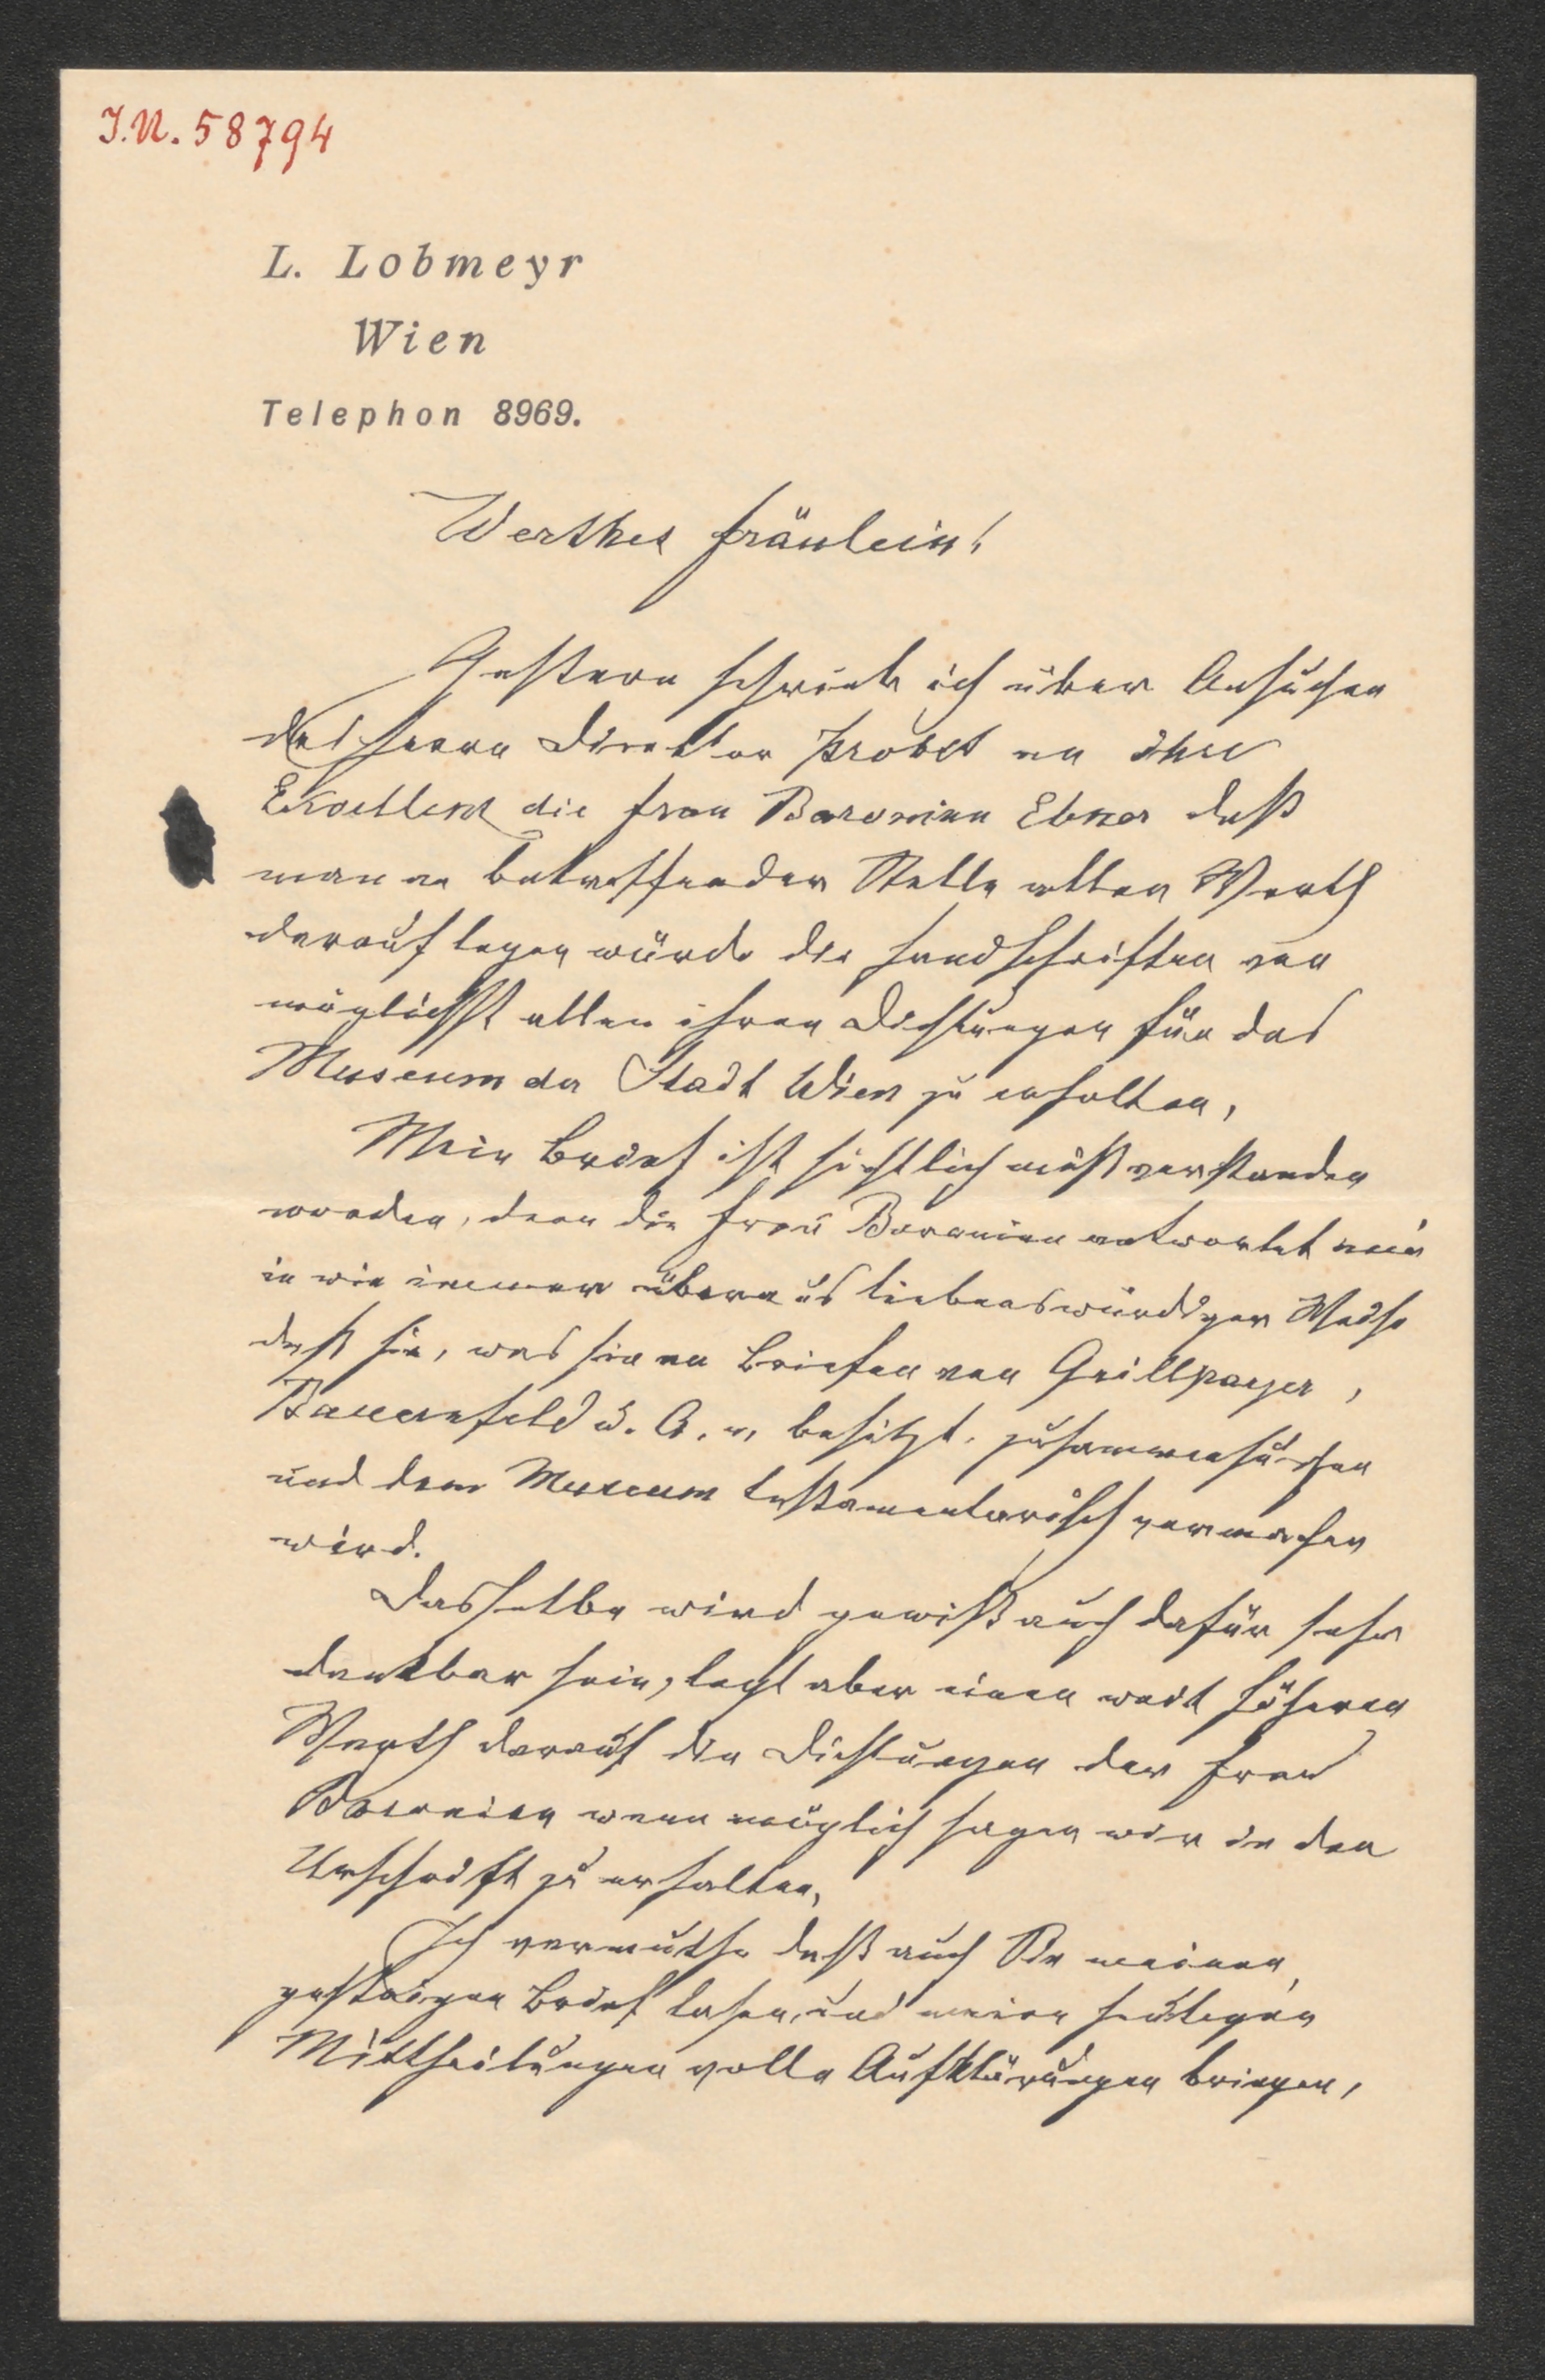 J.N. 58794
L. Lobmeyr
Wien
Telephon 8969.
Werthes Fräulein!
Gestern schrieb ich über Ansuchen
des Herrn Direktor Probst an Ihre
Exzellenz die Frau Baronin Ebner daß
man an betreffender Stelle allen Werth
darauf legen würde die Handschriften von
möglichst allen ihren Dichtungen für das
Museum der Stadt Wien zu erhalten,
Mein Brief ist sichtlich mißverstanden
worden, denn die Frau Baronin antwortet mir
in wie immer überaus liebenswürdiger Weise
daß sie, was sie an Briefen von Grillparzer,
Bauernfeld u. A. m. besitzt, zusammensuchen
und dem Museum testamentarisch vermachen
wird.
Dasselbe wird gewiß auch dafür sehr
dankbar sein, legt aber einen weit höheren
Werth darauf die Dichtungen der Frau
Baronin wenn möglich sagen wir in der
Urschrift zu erhalten,
Ich vermuthe daß auch Sie meinen
gestrigen Brief lasen, und meine heutigen
Mittheilungen volle Aufklärungen bringen,